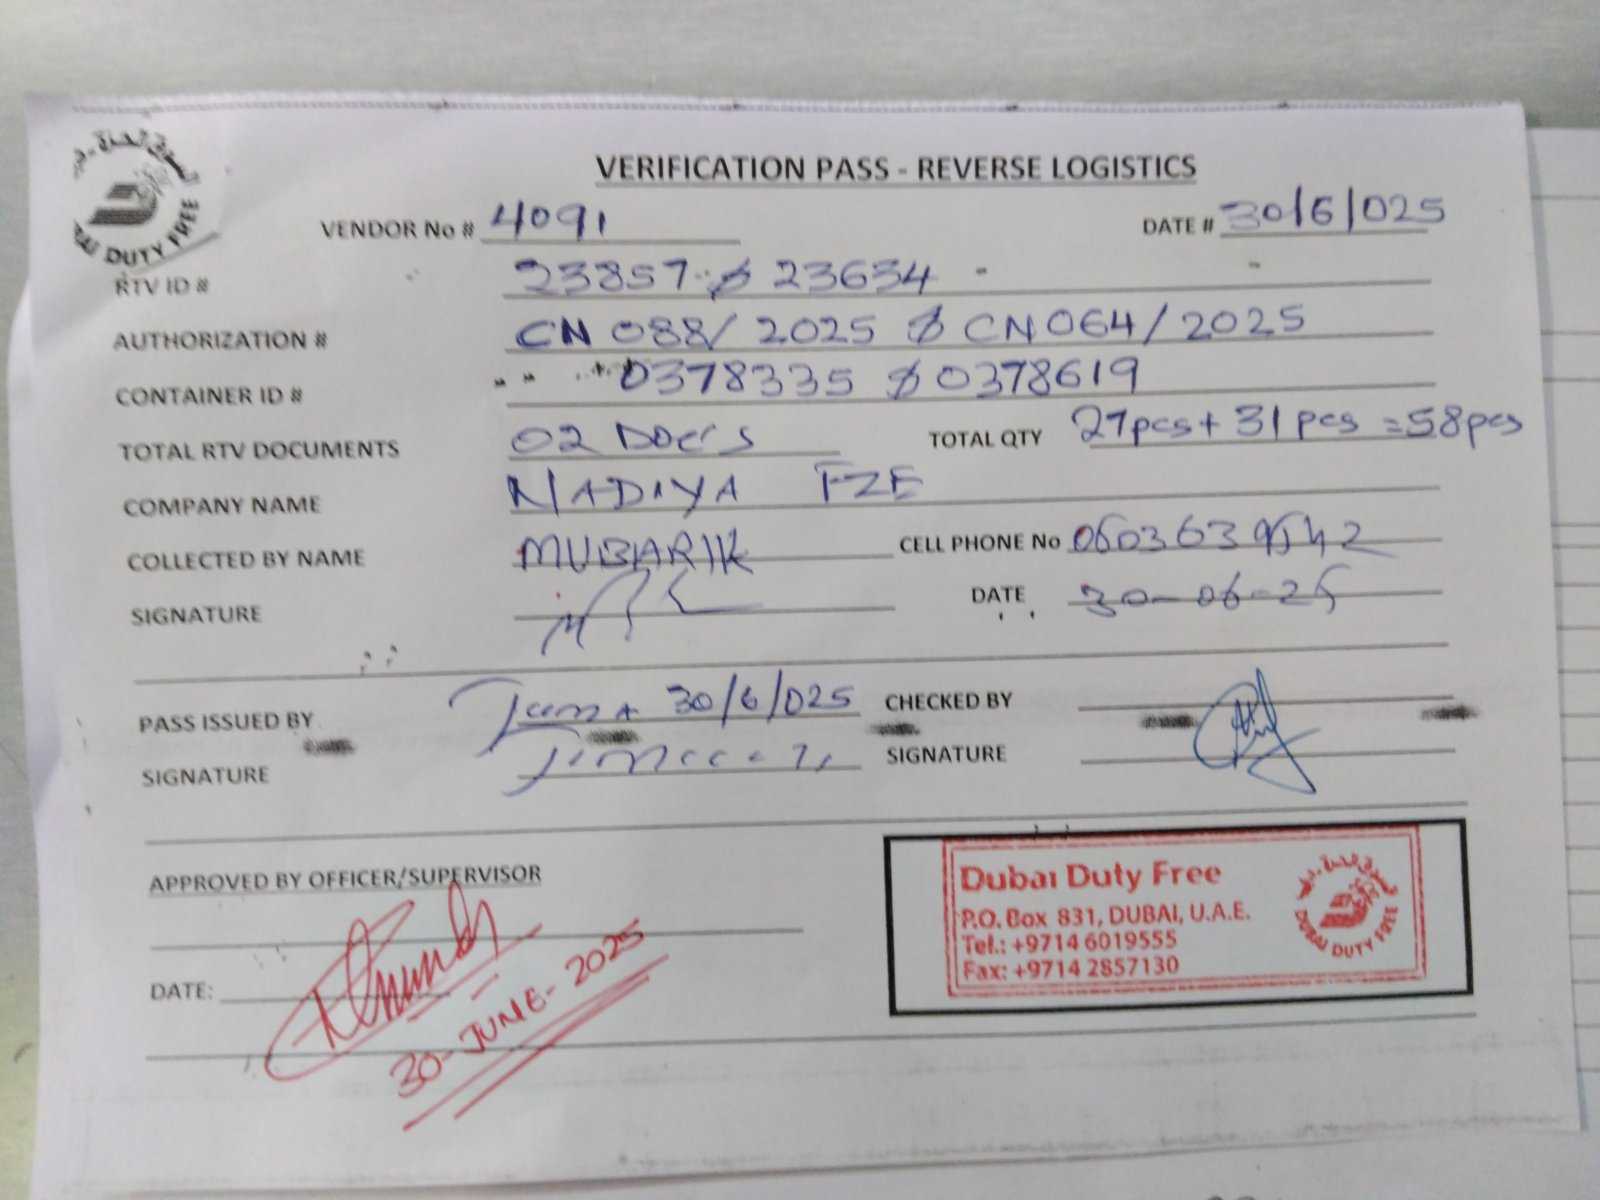 السوق الحرة - دبي
DUBAI DUTY FREE
VERIFICATION PASS - REVERSE LOGISTICS
VENDOR No # 4091 DATE # 30/6/025
RTV ID # 23857 & 23634
AUTHORIZATION # CN 088/2025 & CN064/2025
CONTAINER ID # 0378335 & 0378619
TOTAL RTV DOCUMENTS 02 DOCS TOTAL QTY 27pcs + 31 pcs = 58pcs
COMPANY NAME NADIYA FZE
COLLECTED BY NAME MUBARIK CELL PHONE No
SIGNATURE DATE 30-06-25
PASS ISSUED BY 30/6/025 CHECKED BY
SIGNATURE SIGNATURE
APPROVED BY OFFICER/SUPERVISOR
DATE:
30-JUNE-2025
Dubai Duty Free
P.O. Box 831, DUBAI, U.A.E.
Tel.: +9714 6019555
Fax: +9714 2857130
السوق الحرة - دبي
DUBAI DUTY FREE